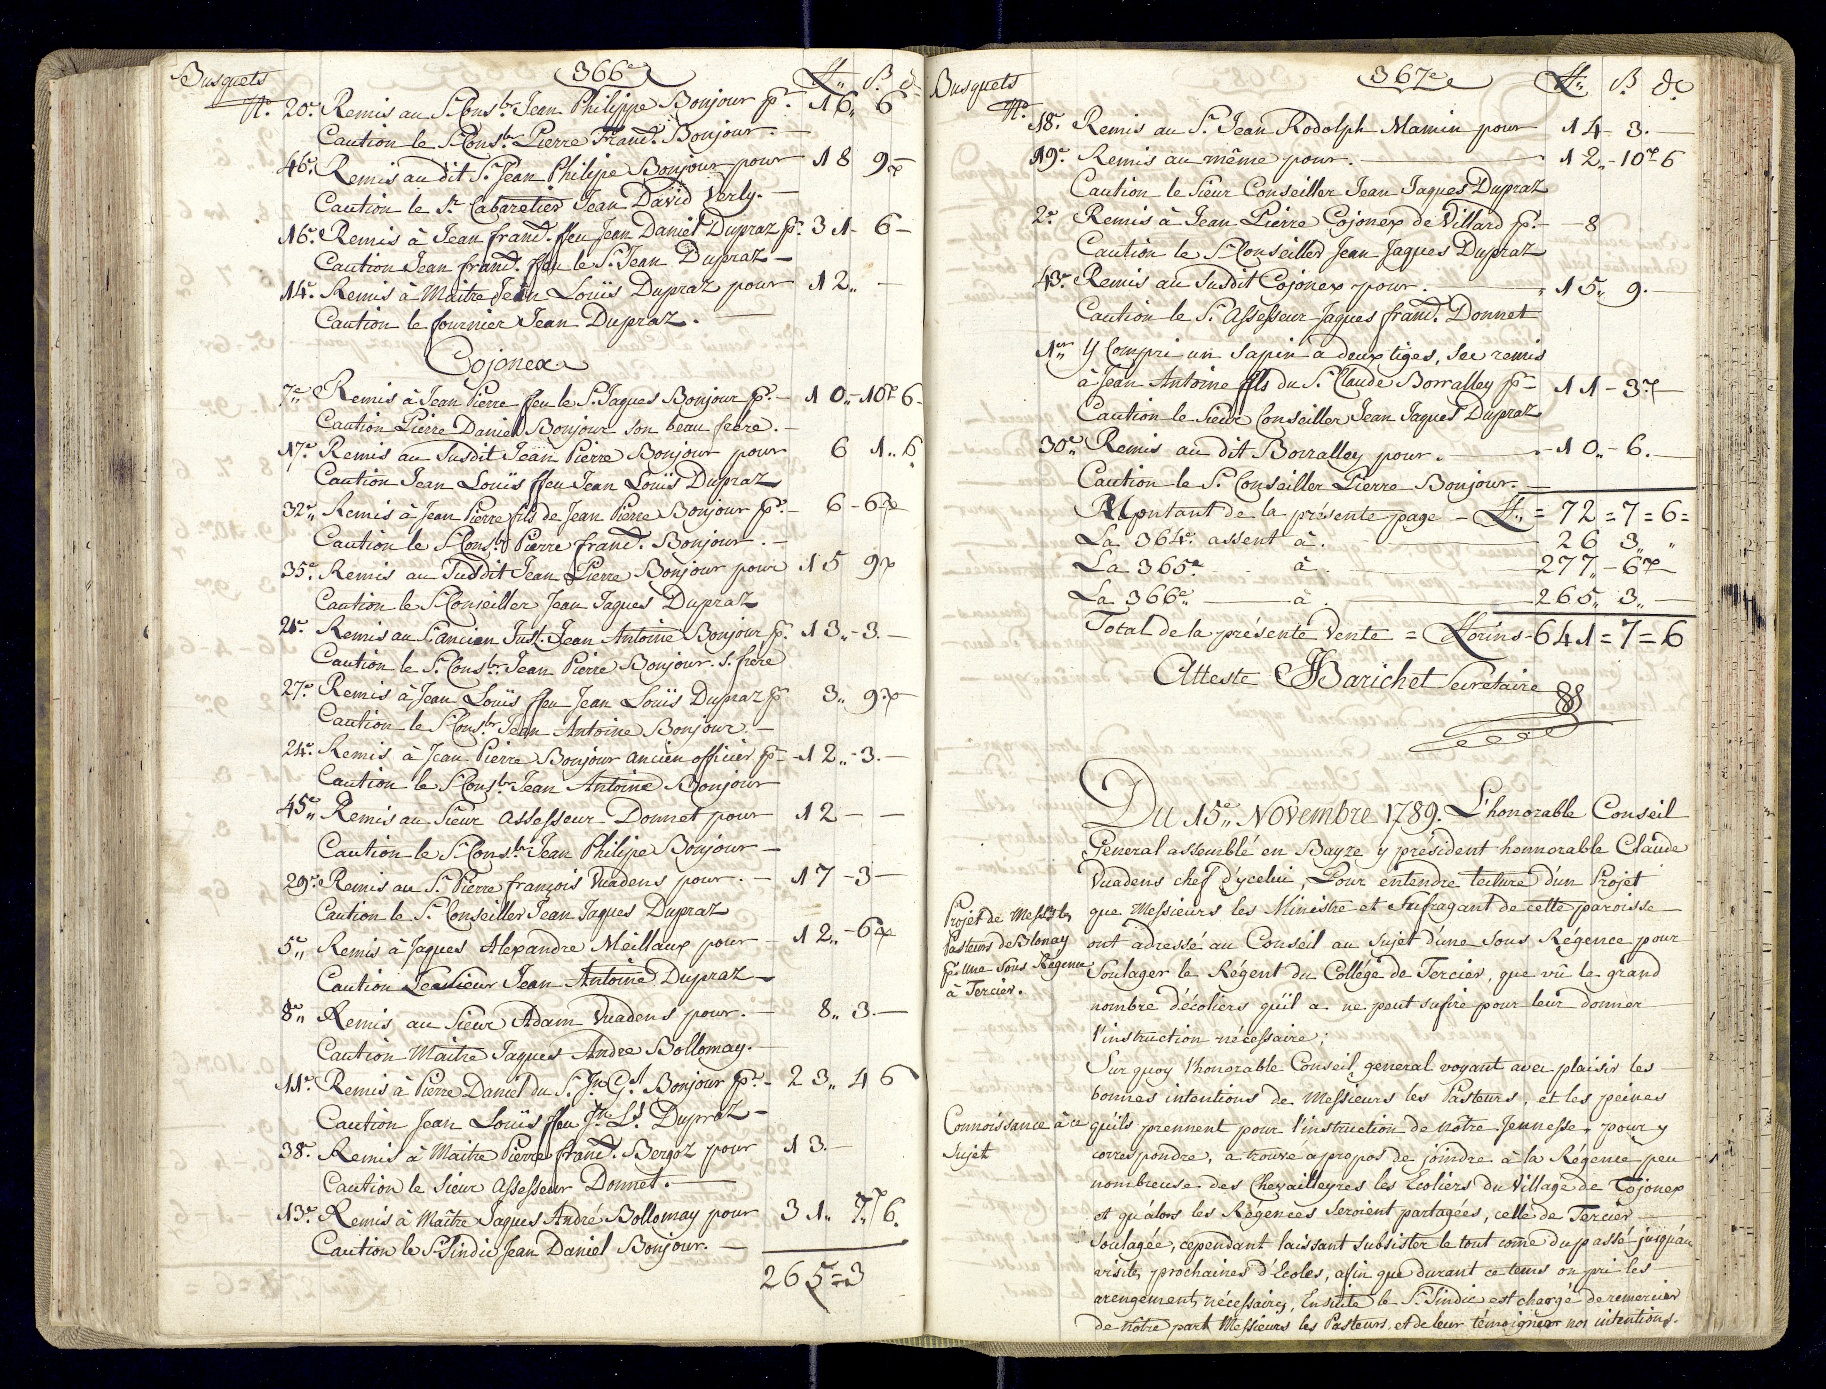 Busquets
366e
ff. ß. d
No. 20e. Remis au Sr. Consr. Jean Philippe Bonjour pr. 16" 6
Caution le Sr. Consr. Pierre Frand. Bonjour. —
46e. Remis au dit Sr. Jean Philipe Bonjour pour 18 9 —
Caution le Sr. Cabaretier Jean David Verly. —
16e. Remis à Jean frand. ffeu Jean Daniel Dupraz pr. 31 - 6 -
Caution Jean frand. ffeu le Sr. Jean Dupraz —
14e. Remis à Maitre Jean Loüis Dupraz pour 12" —
Caution le fournier Jean Dupraz. —
Cojonex
7e" Remis à Jean Pierre ffeu le Sr. Jaques Bonjour pr. — 10"-10 6 -
Caution Pierre Daniel Bonjour son beau frere. —
17e" Remis au Susdit Jean Pierre Bonjour pour 6 1" 6
Caution Jean Loüis ffeu Jean Loüis Dupraz
32e" Remis à Jean Pierre fils de Jean Pierre Bonjour pr. — 6 - 6
Caution le Sr. Consr. Pierre frand. Bonjour. —
35e. Remis au Susdit Jean Pierre Bonjour pour 15 9
Caution le Sr. Conseiller Jean Jaques Dupraz
21e. Remis au Sr. ancien Just. Jean Antoine Bonjour pr. 13"-3. —
Caution le Sr. Consr. Jean Pierre Bonjour. s. frere
27e. Remis à Jean Loüis ffeu Jean Loüis Dupraz pr 3" 9
Caution le Sr. Consr. Jean Antoine Bonjour. —
24e. Remis à Jean Pierre Bonjour ancien officier pr — 12"-3. —
Caution le Sr. Consr. Jean Antoine Bonjour
45e" Remis au Sieur Assesseur Donnet pour 12 — —
Caution le Sr. Consr. Jean Philipe Bonjour —
29e. Remis au Sr. Pierre françois Vuadens pour. — 17 - 3 —
Caution le Sr. Conseiller Jean Jaques Dupraz
5e" Remis à Jaques Alexandre Meillaux pour — 12"-6
Caution Le Sieur Jean Antoine Dupraz —
8e" Remis au Sieur Adam Vuadens pour. — 8" 3. —
Caution Maitre Jaques Andre Bollomay. —
11e. Remis à Pierre Daniel du Sr. Jn. Gl. Bonjour pr. - 23" 4 6
Caution Jean Loüis ffeu Jn. Ls. Dupraz —
38e. Remis à Maitre Pierre frand. Bergoz pour 13. —
Caution le Sieur Assesseur Donnet. —
13e. Remis à Maître Jaques André Bollomay pour 31" 7 6.
Caution le Sr. Sindic Jean Daniel Bonjour. —
265 = 3
Busquets
367e
ff. ß. d.
No.
18e. Remis au Sr. Jean Rodolph Mamin pour 14 - 3. —
19e. Remis au même pour. — 12"-10 6
Caution le Sieur Conseiller Jean Jaques Dupraz
2e. Remis à Jean Pierre Cojonex de Villard pr. — 8
Caution le Sr. Conseiller Jean Jaques Dupraz
43e. Remis au Susdit Cojonex pour. — 15" 9. —
Caution le Sr. Assesseur Jaques frand. Donnet
1er" Y Compri un Sapin à deux tiges, sec remis
à Jean Antoine ffils du Sr. Claude Borralley pr — 11 - 3 —
Caution le Sieur Conseiller Jean Jaques Dupraz
30e" Remis au dit Borralley pour. — 10"- 6. —
Caution le Sr. Conseiller Pierre Bonjour. —
Montant de la présente page — ff" = 72 = 7 = 6 =
La 364e. assent à. — 26 3" "
La 365e. à — 277"- 6 —
La 366e. — à. — 265" 3" —
Total de la présente Vente = fflorins - 641 = 7 = 6
Atteste Barichet Secretaire
Du 15e" Novembre 1789. L'honorable Conseil
General assemblé en Bayze y président honnorable Claude
Vuadens chef d'ycelui, Pour entendre lecture d'un Projet
que Messieurs les Ministre et Sufragant de cette paroisse
Projet de Messrs. les
Pasteurs de Blonay
pr. une Sous Régence
à Tercier.
ont adressé au Conseil au Sujet d'une Sous Régence pour
Soulager le Régent du Collége de Tercier, que vû le grand
nombre d'écoliers qu'il a ne peut sufire pour leur donner
l'instruction nécessaire;
Sur quoy l'honorable Conseil general voyant avec plaisir les
bonnes intentions de Messieurs les Pasteurs, et les peines
Connoissance à ce
Sujet
qu'ils prennent pour l'instruction de nôtre Jeunesse, pour y
correspondre, a trouvé apropos de joindre à la Régence peu
nombreuse des Chevailleyres les Ecoliers du Village de Cojonex
et qu'alors les Régences seroient partagées, celle de Tercier
Soulagée, cependant laissant subsister le tout come du passé jusqu'au
visites prochaines d'Ecoles, afin que durant ce tems on pri les
arengements nécessaires, Ensuite le Sr. Sindic est chargé de remercier
de nôtre part Messieurs les Pasteurs, et de leur témoigner nos intentions.